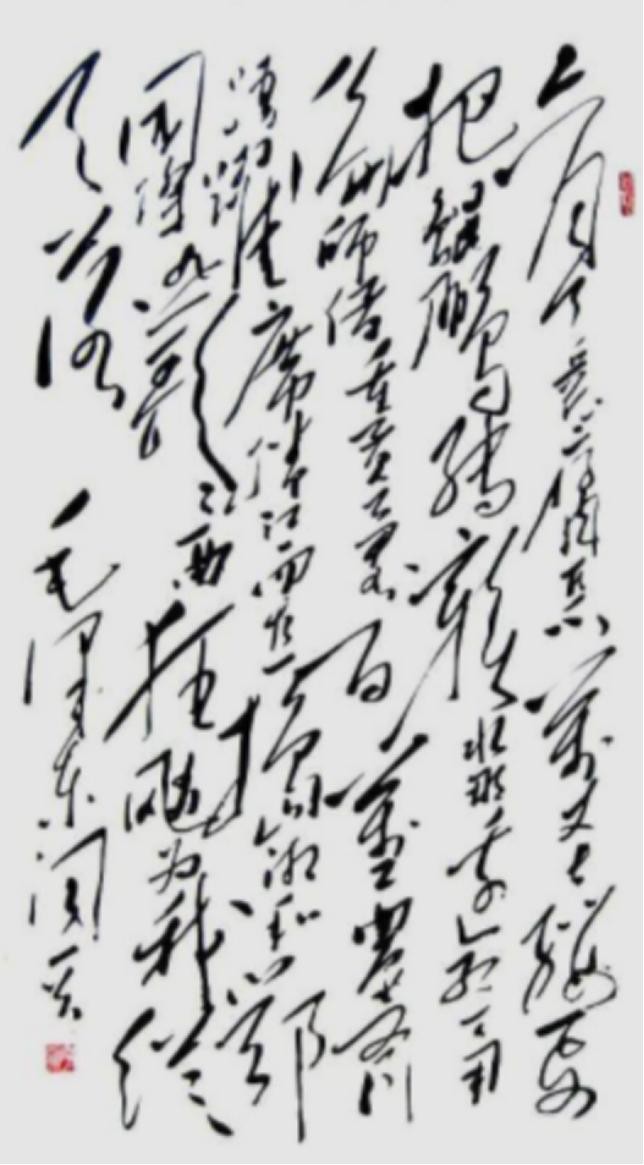 六月天兵征腐恶萬丈长缨要
把鲲鹏缚赣水那邊红一角
偏师借重黄公略百萬工農齐
踴躍席捲江西直捣湘和鄂
国际悲歌一曲狂飚为我从
天落
毛泽东